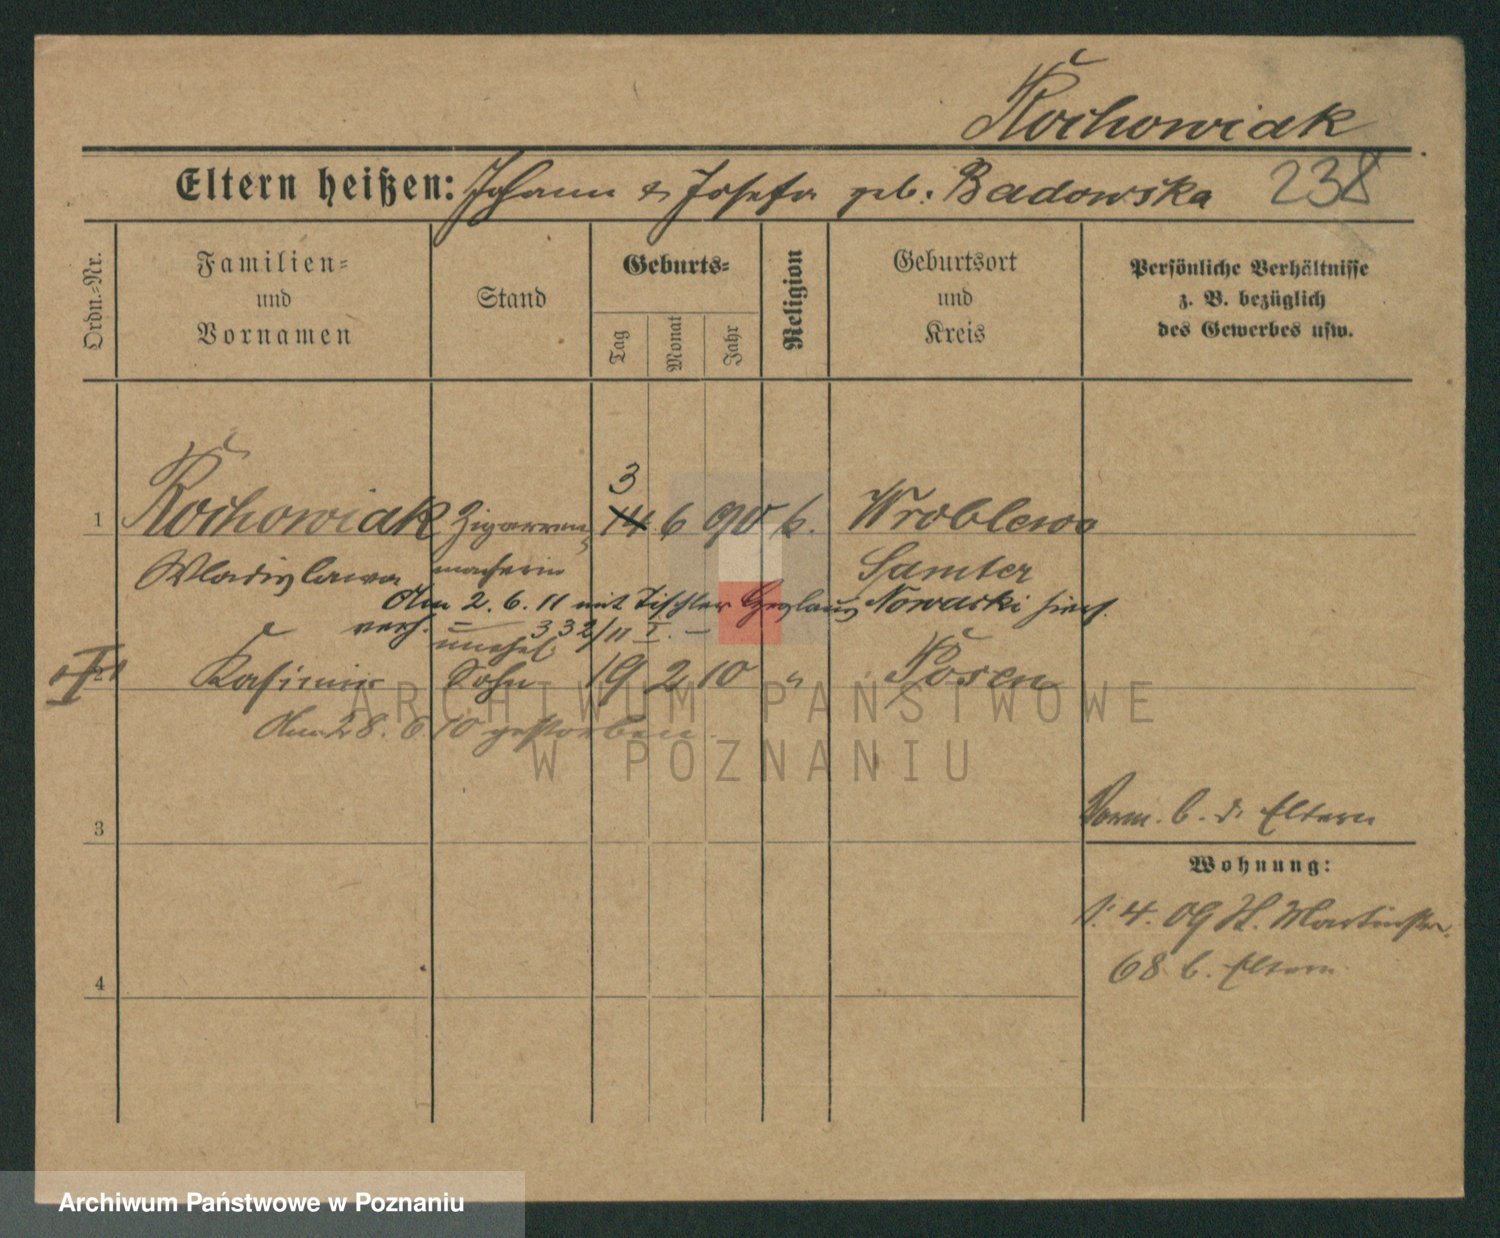 Kochowiak
Eltern heißen: Johann & Josefa geb. Badowska 238
Ordn.-Nr.
Familien-
und
Vornamen
Stand
Geburts-
Tag
Monat
Jahr
Religion
Geburtsort
und
Kreis
Persönliche Verhältnisse
z. B. bezüglich
des Gewerbes usw.
3
1 Kochowiak Zigarren- 14. 6 90 k. Wroblewo
Wladislawa macherin Samter
Am 2. 6. 11 mit Tischler Nowacki
verh. 332/11 I. –
unehel.
Kasimir Sohn 19 2 10 " Posen
Am 28. 6 10 gestorben.
ARCHIWUM PAŃSTWOWE
W POZNANIU
3
Vorm. b. d. Eltern
Wohnung:
1. 4. 09 St. Martinstr.
68 b. Eltern
4
Archiwum Państwowe w Poznaniu